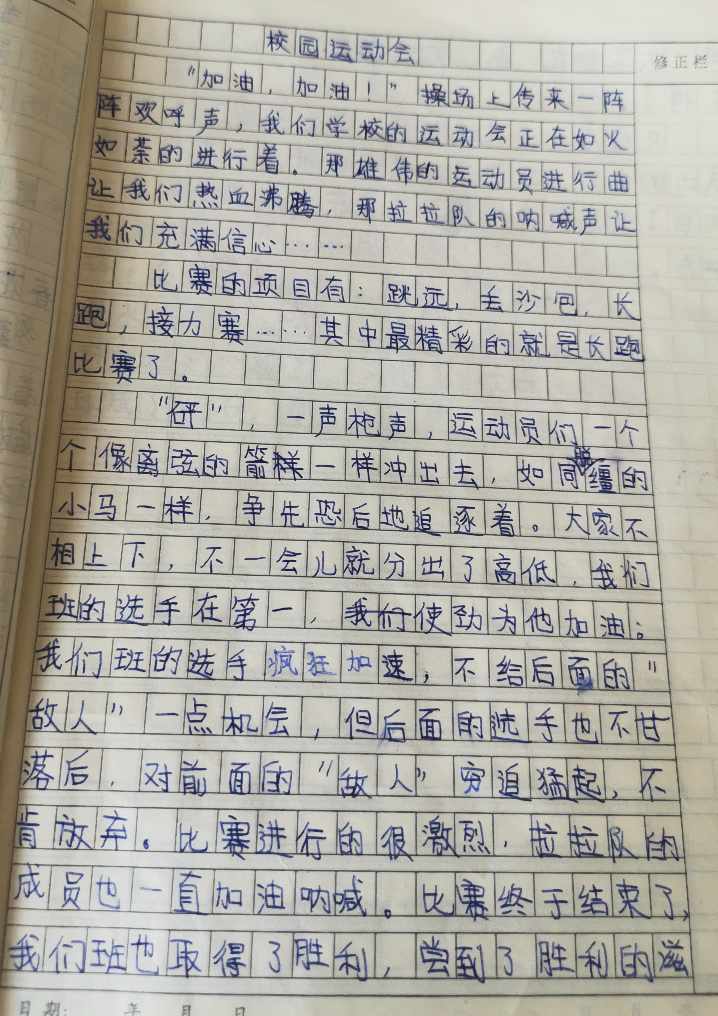 校园运动会
修正栏
“加油，加油！”操场上传来一阵
阵欢呼声，我们学校的运动会正在如火
如荼的进行着。那雄伟的运动员进行曲
让我们热血沸腾，那拉拉队的呐喊声让
我们充满信心……
比赛的项目有：跳远，丢沙包，长
跑，接力赛……其中最精彩的就是长跑
比赛了。
“砰”，一声枪声，运动员们一个
个像离弦的箭一样冲出去，如同脱缰的
小马一样，争先恐后地追逐着。大家不
相上下，不一会儿就分出了高低，我们
班的选手在第一，我们使劲为他加油。
我们班的选手疯狂加速，不给后面的“
敌人”一点机会，但后面的选手也不甘
落后，对前面的“敌人”穷追猛起，不
肯放弃。比赛进行的很激烈，拉拉队的
成员也一直加油呐喊。比赛终于结束了，
我们班也取得了胜利，尝到了胜利的滋
日期： 年 月 日